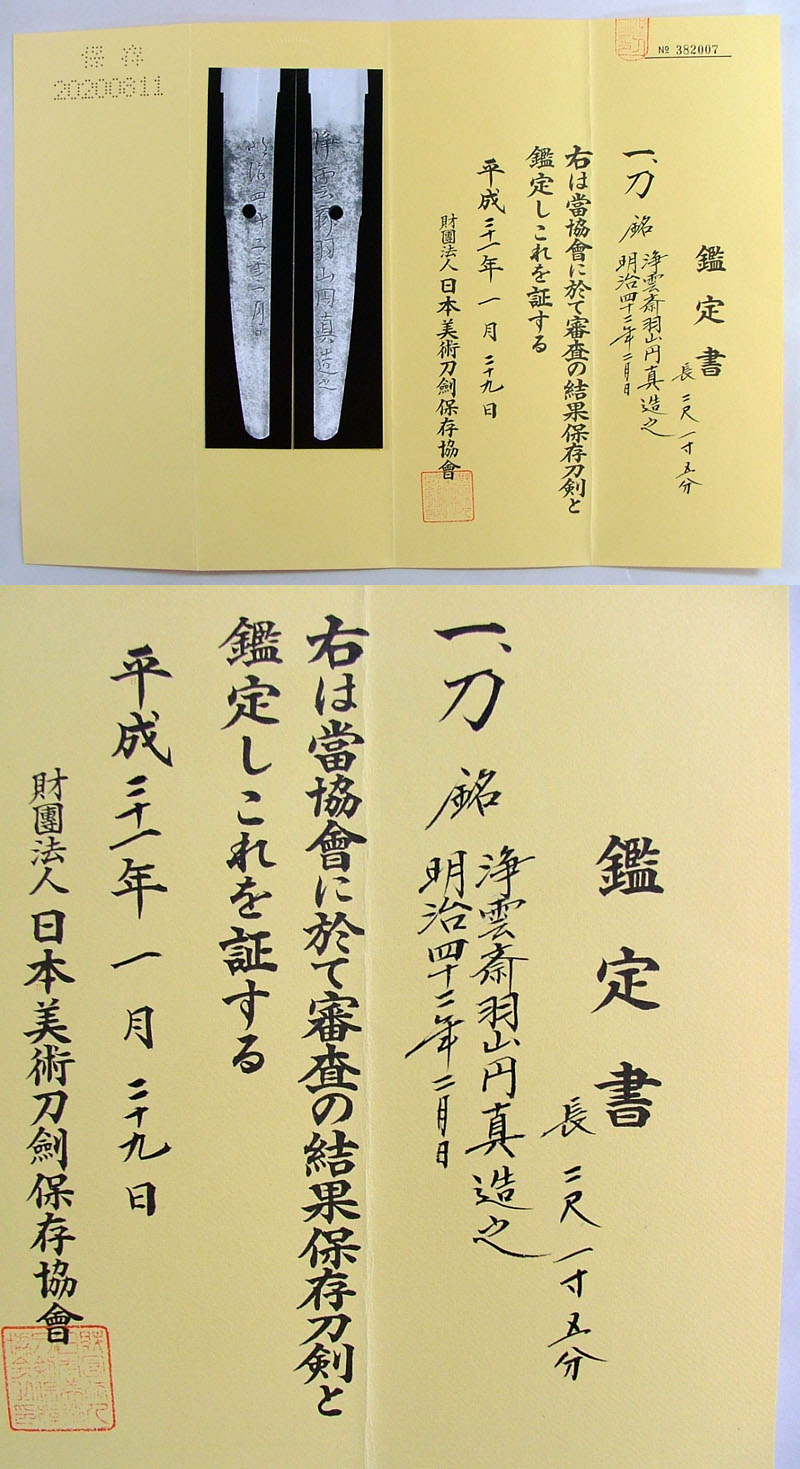 № 382007
鑑定書
長 二尺一寸五分
一、刀 銘 浄雲斎羽山円真造之
明治四十二年二月日
右は當協會に於て審査の結果保存刀剣と
鑑定しこれを証する
平成三十一年一月二十九日
財團法人日本美術刀劍保存協會
浄雲斎羽山円真造之
保存
20200811
鑑定書
長 二尺一寸五分
一、刀 銘 浄雲斎羽山円真造之
明治四十二年二月日
右は當協會に於て審査の結果保存刀剣と
鑑定しこれを証する
平成三十一年一月二十九日
財團法人日本美術刀劍保存協會